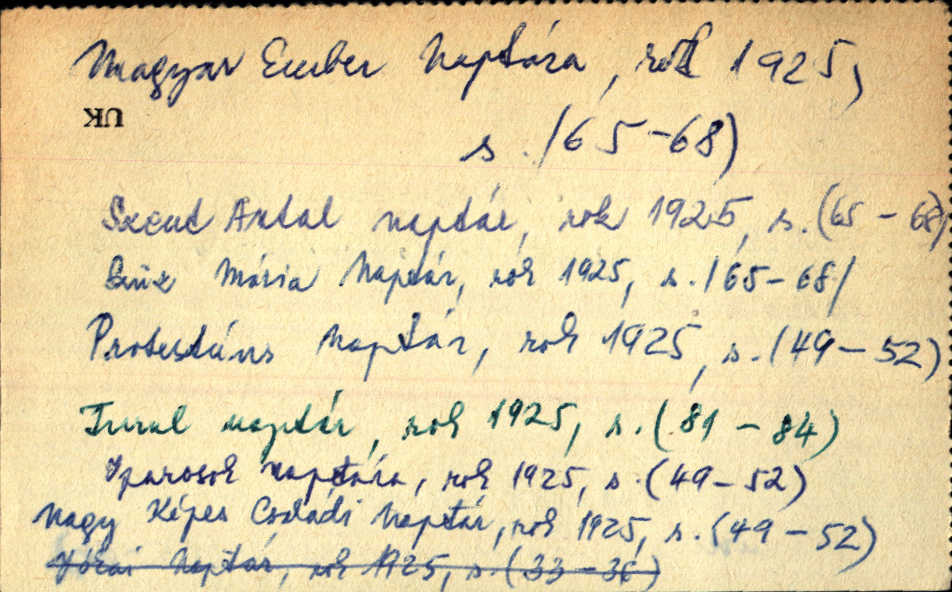 Magyar Ember Naptára, rok 1925,
UK
s. /65-68)
Szent Antal naptár, rok 1925, s. (65 - 68)
Szüz Mária Naptár, rok 1925, s. /65-68/
Protestáns Naptár, rok 1925, s. (49 - 52)
Turul naptár, rok 1925, s. (81 - 84)
Iparosok naptára, rok 1925, s. (49 - 52)
Nagy Képes Családi Naptár, rok 1925, s. (49 - 52)
Jókai Naptár, rok 1925, s. (33 - 36)